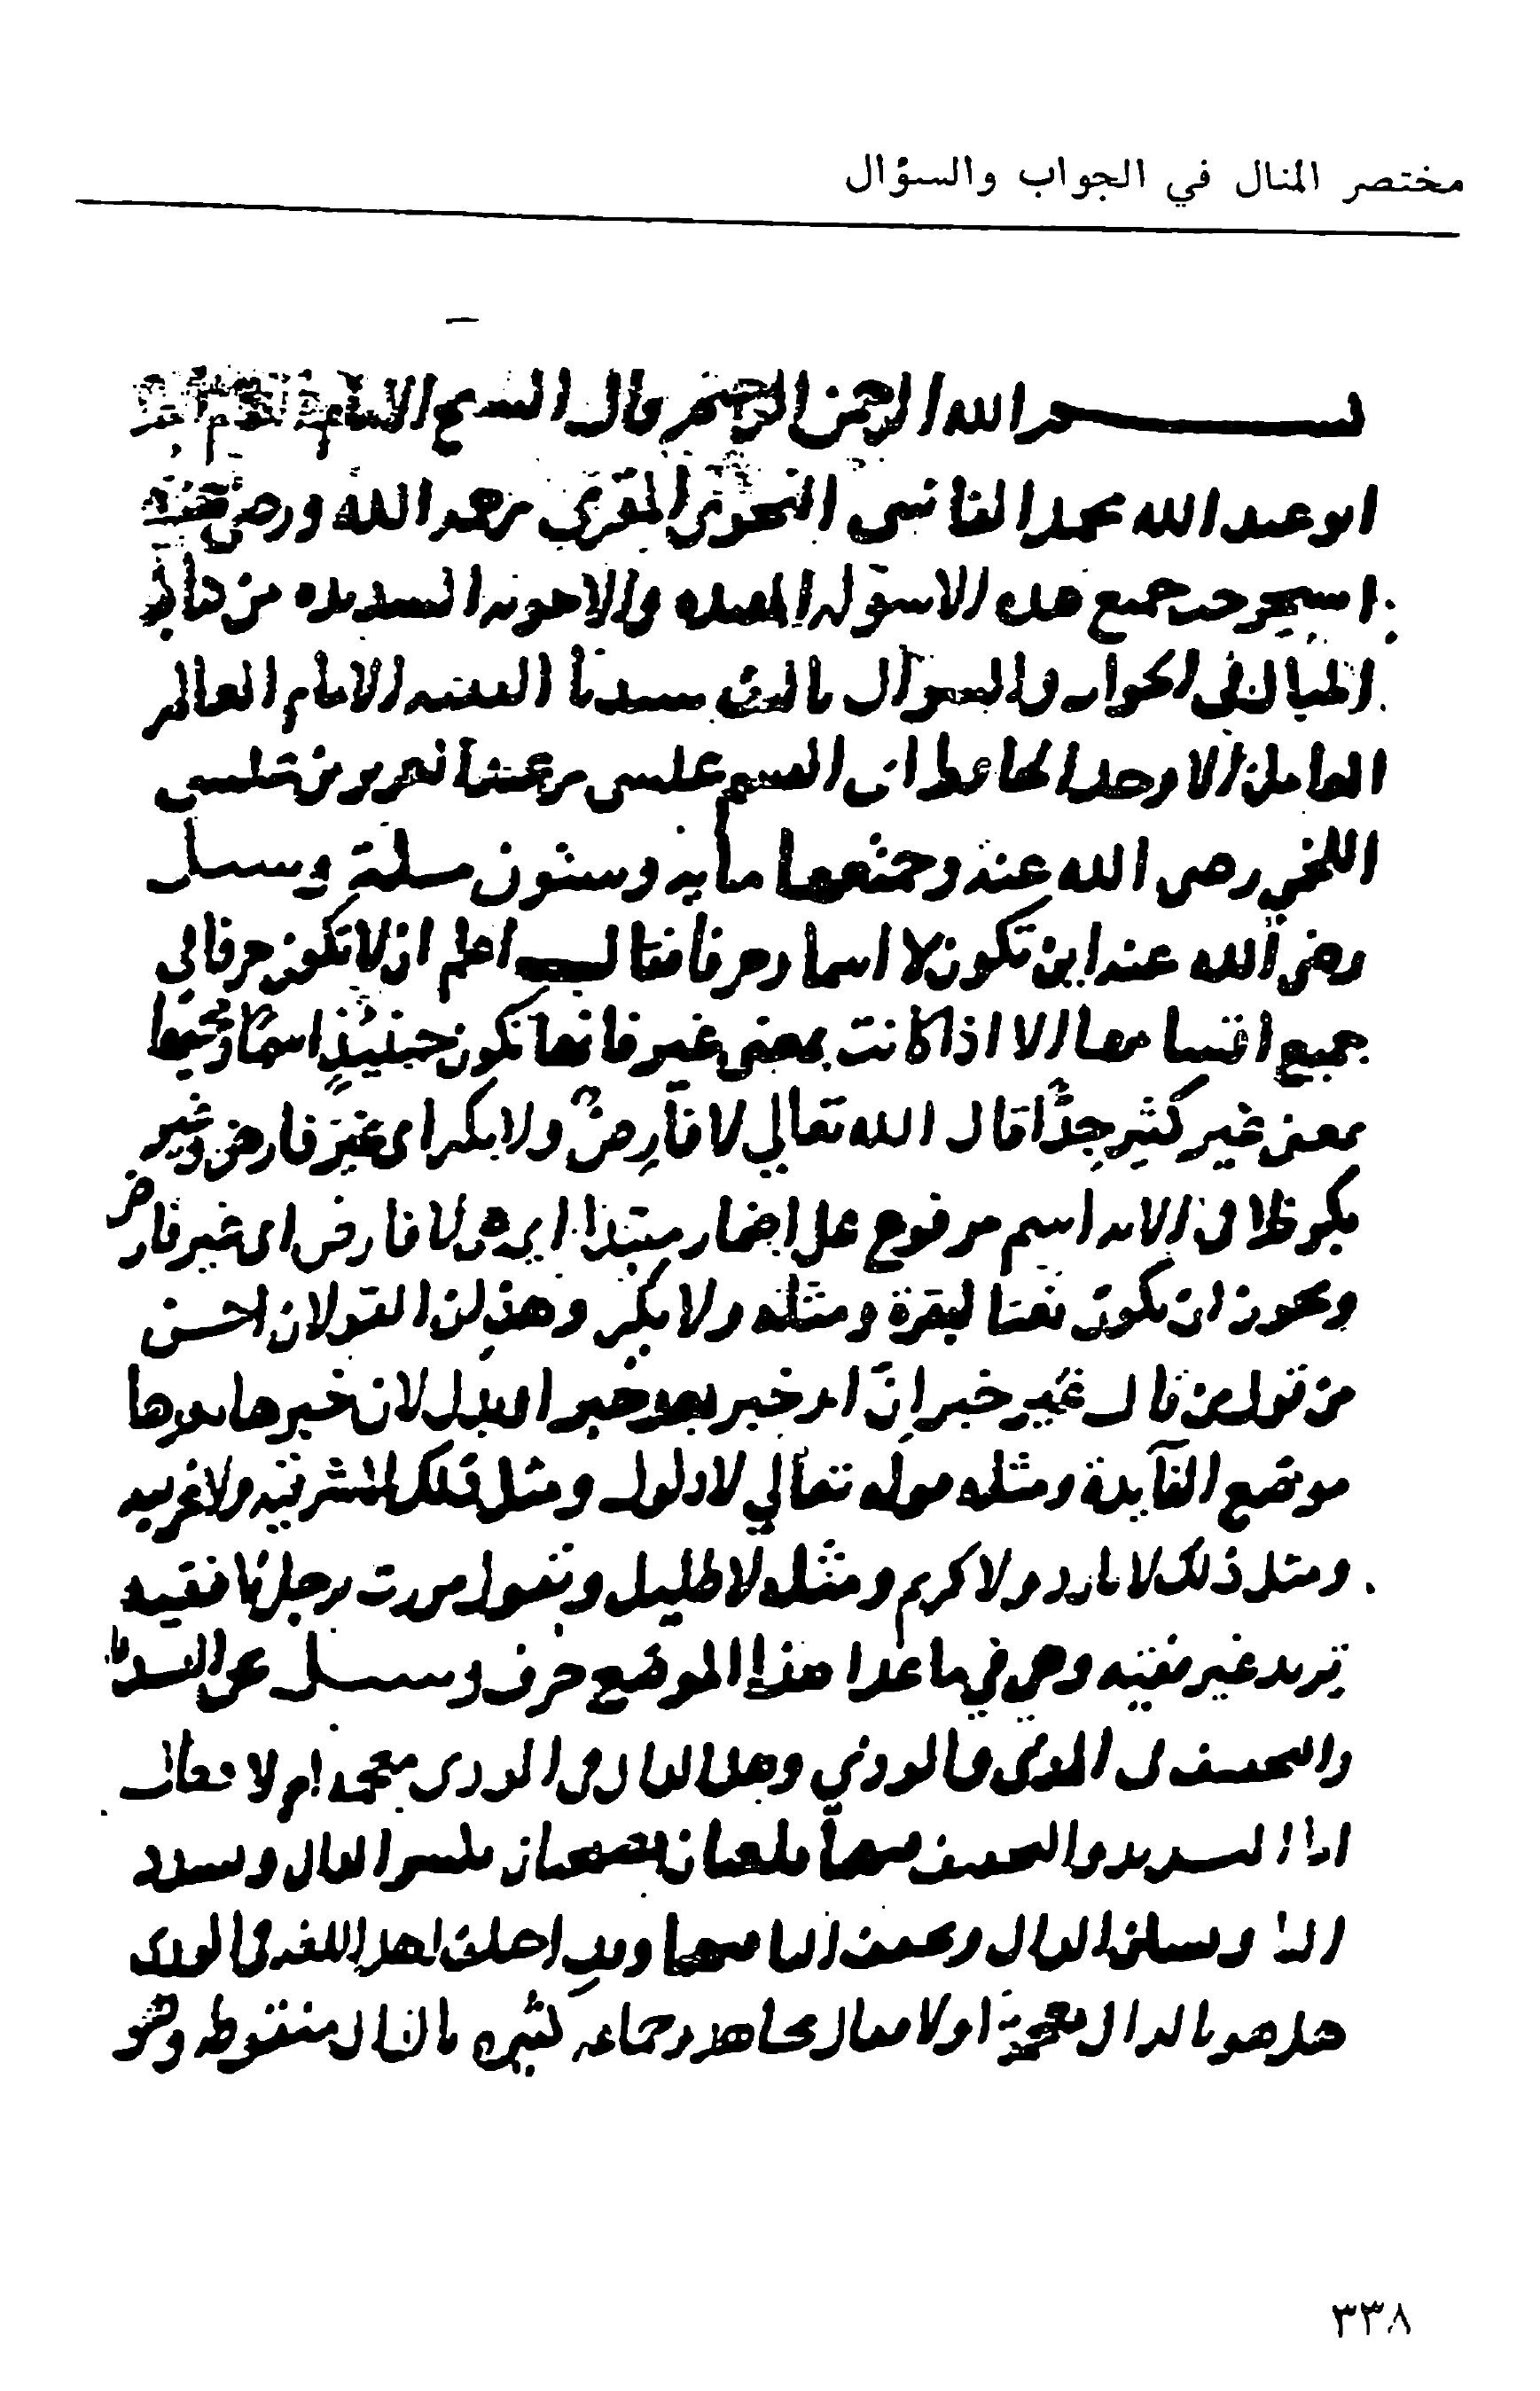 مختصر المنال في الجواب والسؤال
بسم الله الرحمن الرحيم قال الشيخ الامام
ابو عبد الله محمد الفاسي النحوي المقري رحمه الله ورضي عنه
استخرجت جميع هذه الاسولة المفيدة والاجوبة السديدة من كتاب
في الجواب والسوال تاليف سيدنا الفقيه الامام العالم
العامل الاوحد الحافظ ابي القسم عيسى بن
اللخمي رضي الله عنه وجميعها مايه وستون مسلة وسيل
رضي الله عنه اين تكون لا اسما وحرفا فقال اعلم ان لا تكون حرفا في
جميع اقسامها الا اذا كانت بمعنى غير فانها تكون حينيذٍ اسمًا ومجيها
بمعنى غير كثير جدًّا قال الله تعالي لا فارِضٌ ولا بكر اى غير فارض وغير
بكر فلا في الايه اسم مرفوع على اضمار مبتدا اي هي لا فارض اى غير فارض
ويجوز ان يكون نعتا لبقرة ومثله ولا بكر وهذان القولان احسن
من قول من قال غير خبر انّ او خبر بعد خبر لان خبرها بعدها
موضع الفآيدة ومثله قوله تعالي لا ذلول ومثل ذلك لا شرقيه ولا غربيه
ومثل ذلك لا بارد ولا كريم ومثله لا ظليل وتقول مررت برجل لا فقيه
تريد غير فقيه وهي في ما عدا هذا الموضع حرف وسيل عن التشديد
والتخفيف في المذي والودي وهل الدال في الودي معجمه ام لا فقال
اما التشديد والتخفيف فيهما فلغتان فصيحتان بكسر الدال وتشديد
اليا وسكون الدال وتخفيف اليا فيهما وقد اختلف اهل اللغه في الودى
هل هو بالدال معجمة او لا فقال مجاهد وجماعه كثيره بالذال منقوطه وهو
٣٣٨